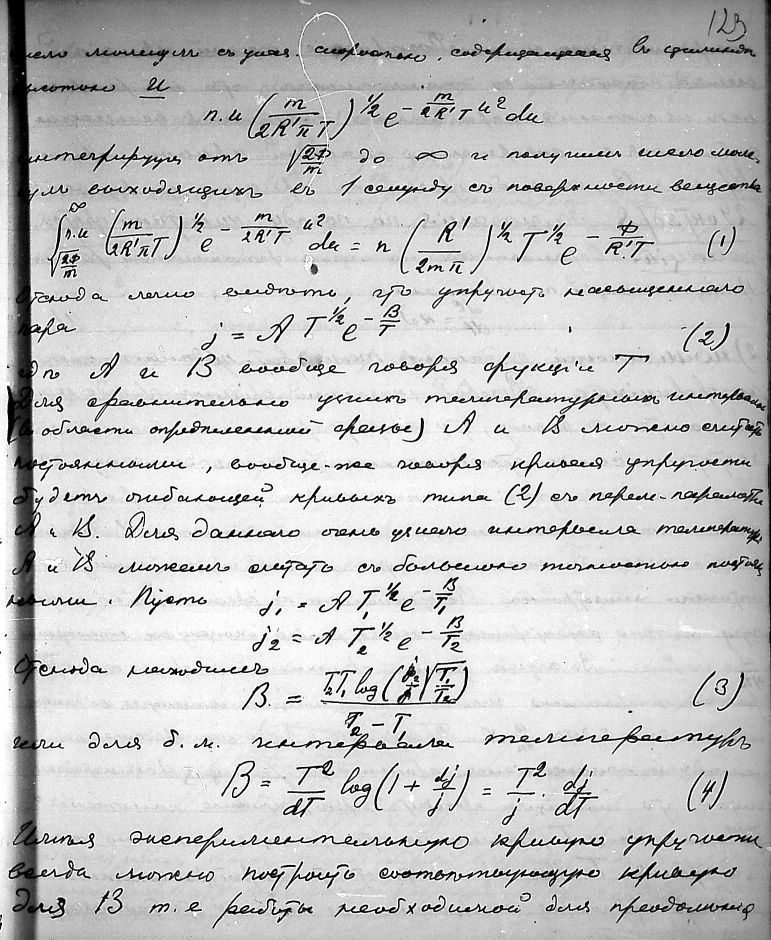 123
число молекулъ съ указ. скоростью, содержащееся въ цилиндрѣ
высотою u
n.u (m/2R'πT)^1/2 e^{- m/2R'T u²} du
интегрируя отъ √(2Φ/m) до ∞ и получимъ число моле-
кулъ выходящихъ въ 1 секунду съ поверхности вещества
∫_{√(2Φ/m)}^∞ n.u (m/2R'πT)^1/2 e^{- m/2R'T u²} du = n (R'/2mπ)^1/2 T^1/2 e^{- Φ/R'.T} (1)
Отсюда легко видѣть, что упругость насыщеннаго
пара j = A T^1/2 e^{- B/T} (2)
гдѣ A и B вообще говоря функціи T
Для сравнительно узкихъ температурныхъ интерваловъ
(въ области опредѣленной фазы) A и B можно считать
постоянными, вообще-же говоря кривая упругости
будетъ огибающей кривыхъ типа (2) съ перем. параметр.
A и B. Для даннаго очень узкаго интервала температуръ
A и B можемъ считать съ большою точностью постоян
ными. Пусть j₁ = A T₁^1/2 e^{- B/T₁}
j₂ = A T₂^1/2 e^{- B/T₂}
Отсюда находимъ
B = T₂T₁ log (j₂/j₁ √(T₁/T₂)) / (T₂ - T₁) (3)
или для б.м. интервала температуръ
B = T²/dT log (1 + dj/j) = T²/j . dj/dT (4)
Имѣя экспериментальную кривую упругости
всегда можно построить соотвѣтствующую кривую
для B т.е работы необходимой для преодолѣнія